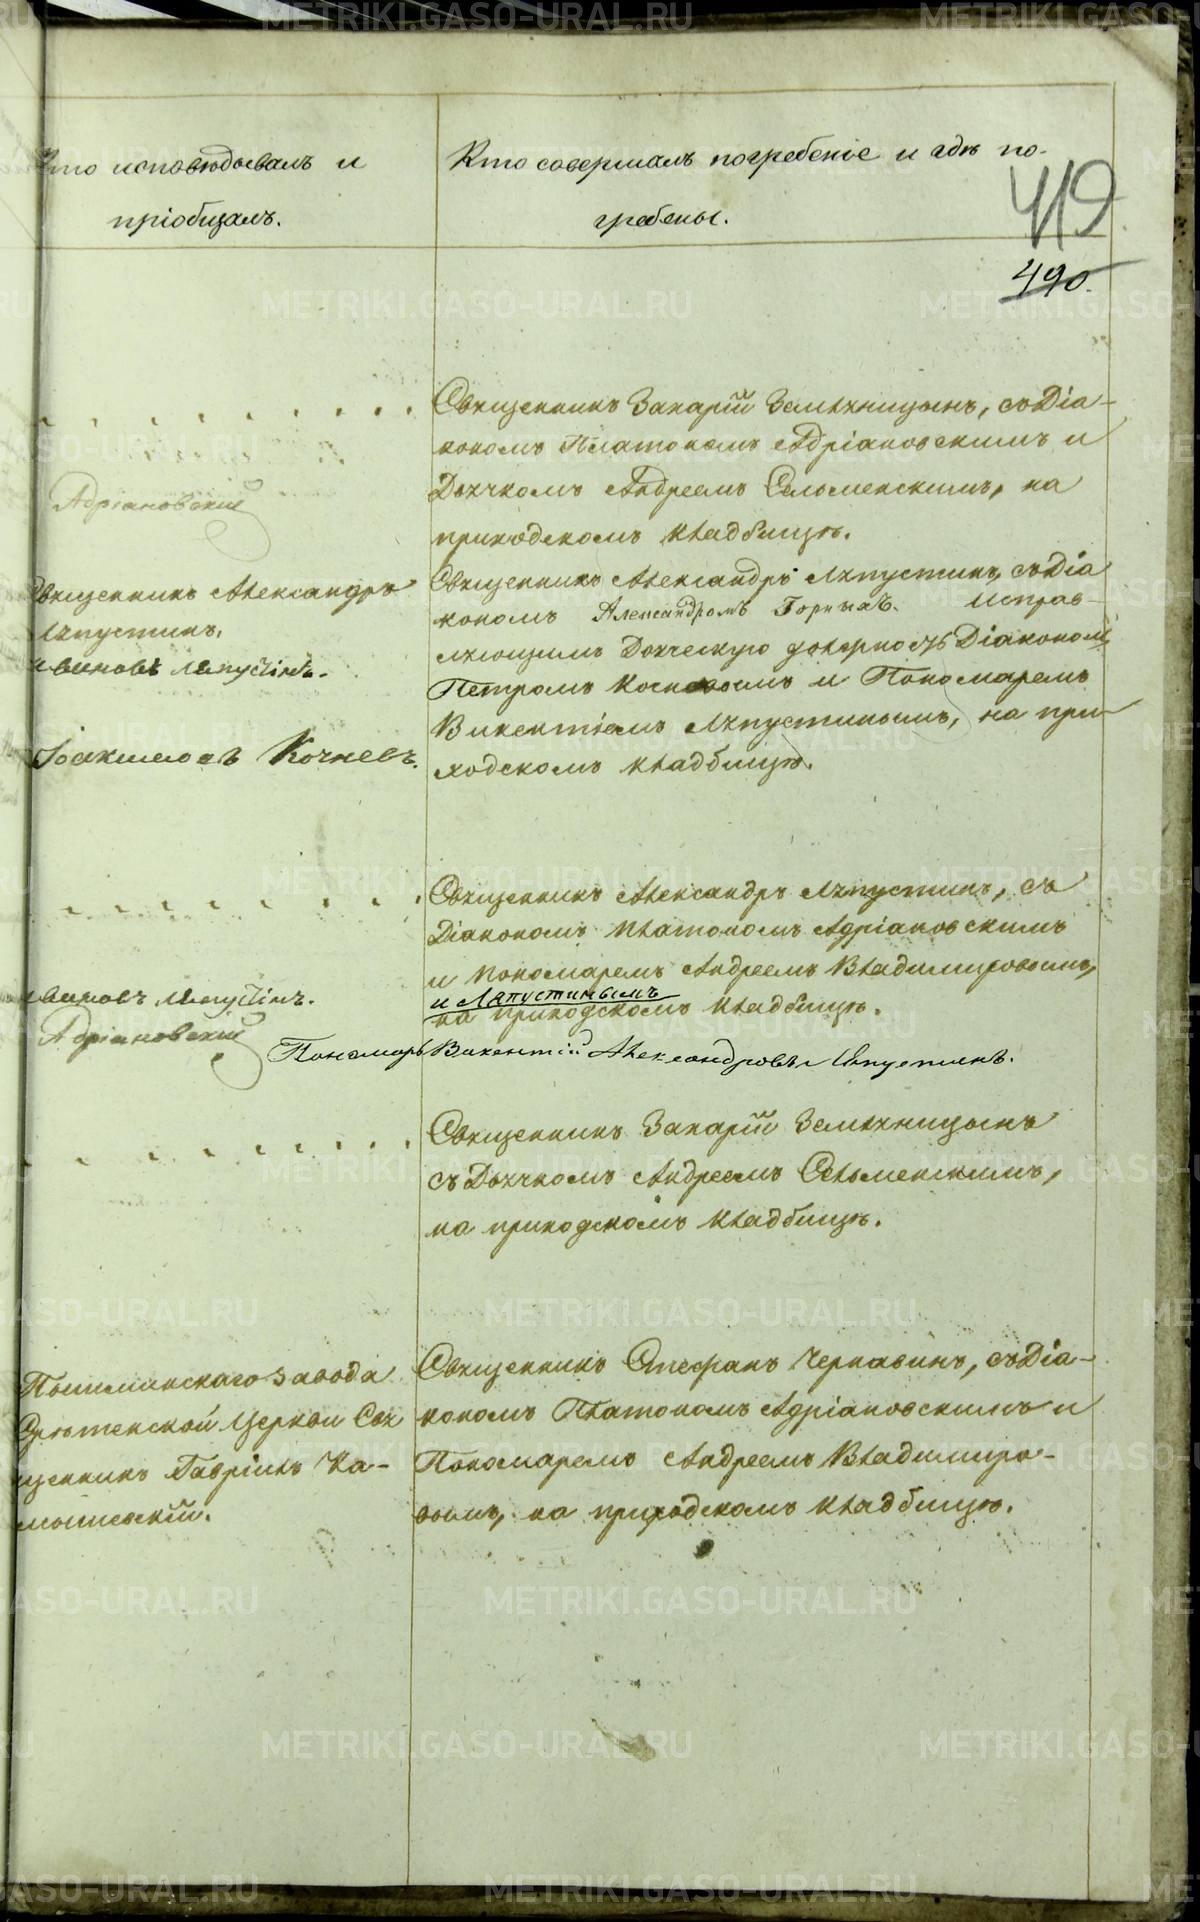 Кто исповѣдывалъ и
пріобщалъ.
Кто совершалъ погребеніе и гдѣ по-
гребены.
419
490.
Священникъ Захарій Земляницынъ, съ Діа-
кономъ Платономъ Адріановскимъ и
Дьячкомъ Андреемъ Сельменскимъ, на
приходскомъ кладбищѣ.
Адріановскій
Священникъ Александръ
Ляпустинъ.
Ляпустинъ.
Кочневъ.
Священникъ Александръ Ляпустинъ, съ Діа
кономъ Александромъ Исправ-
ляющимъ Дьяческую должность Діакономъ
Петромъ и Пономаремъ
Викентіемъ Ляпустинымъ, на при-
ходскомъ кладбищѣ.
Священникъ Александръ Ляпустинъ, съ
Діакономъ Платономъ Адріановскимъ
и Пономаремъ Андреемъ Владимировымъ,
и Ляпустинымъ
на приходскомъ кладбищѣ.
Ляпустинъ.
Адріановскій
Пономарь Викентій Александровъ Ляпустинъ.
Священникъ Захарій Земляницынъ
съ Дьячкомъ Андреемъ Сельменскимъ,
на приходскомъ кладбищѣ.
Пышминскаго завода
Срѣтенской Церкви Свя
щенникъ Гавріилъ Ка-
мышевскій.
Священникъ Стефанъ Чернавинъ, съ Діа-
кономъ Платономъ Адріановскимъ и
Пономаремъ Андреемъ Владимиро-
вымъ, на приходскомъ кладбищѣ.
METRIKI.GASO-URAL.RU